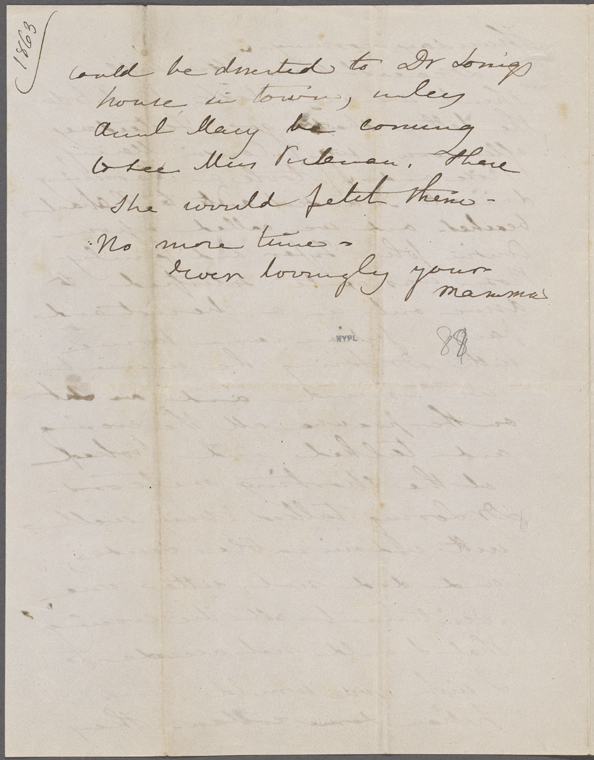 1863
could be directed to Dr Loring's
house in town, unless
Aunt Mary be coming
to see Miss . There
she would fetch them -
No more time -
Ever lovingly your
mamma
NYPL